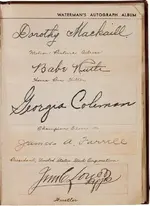 WATERMAN'S AUTOGRAPH ALBUM
Dorothy Mackaill
Motion Picture Actress
Babe Ruth
Home Run King
Georgia Coleman
Champion
James A. Farrell
President, United States Steel Corporation
Jim Londos
Wrestler